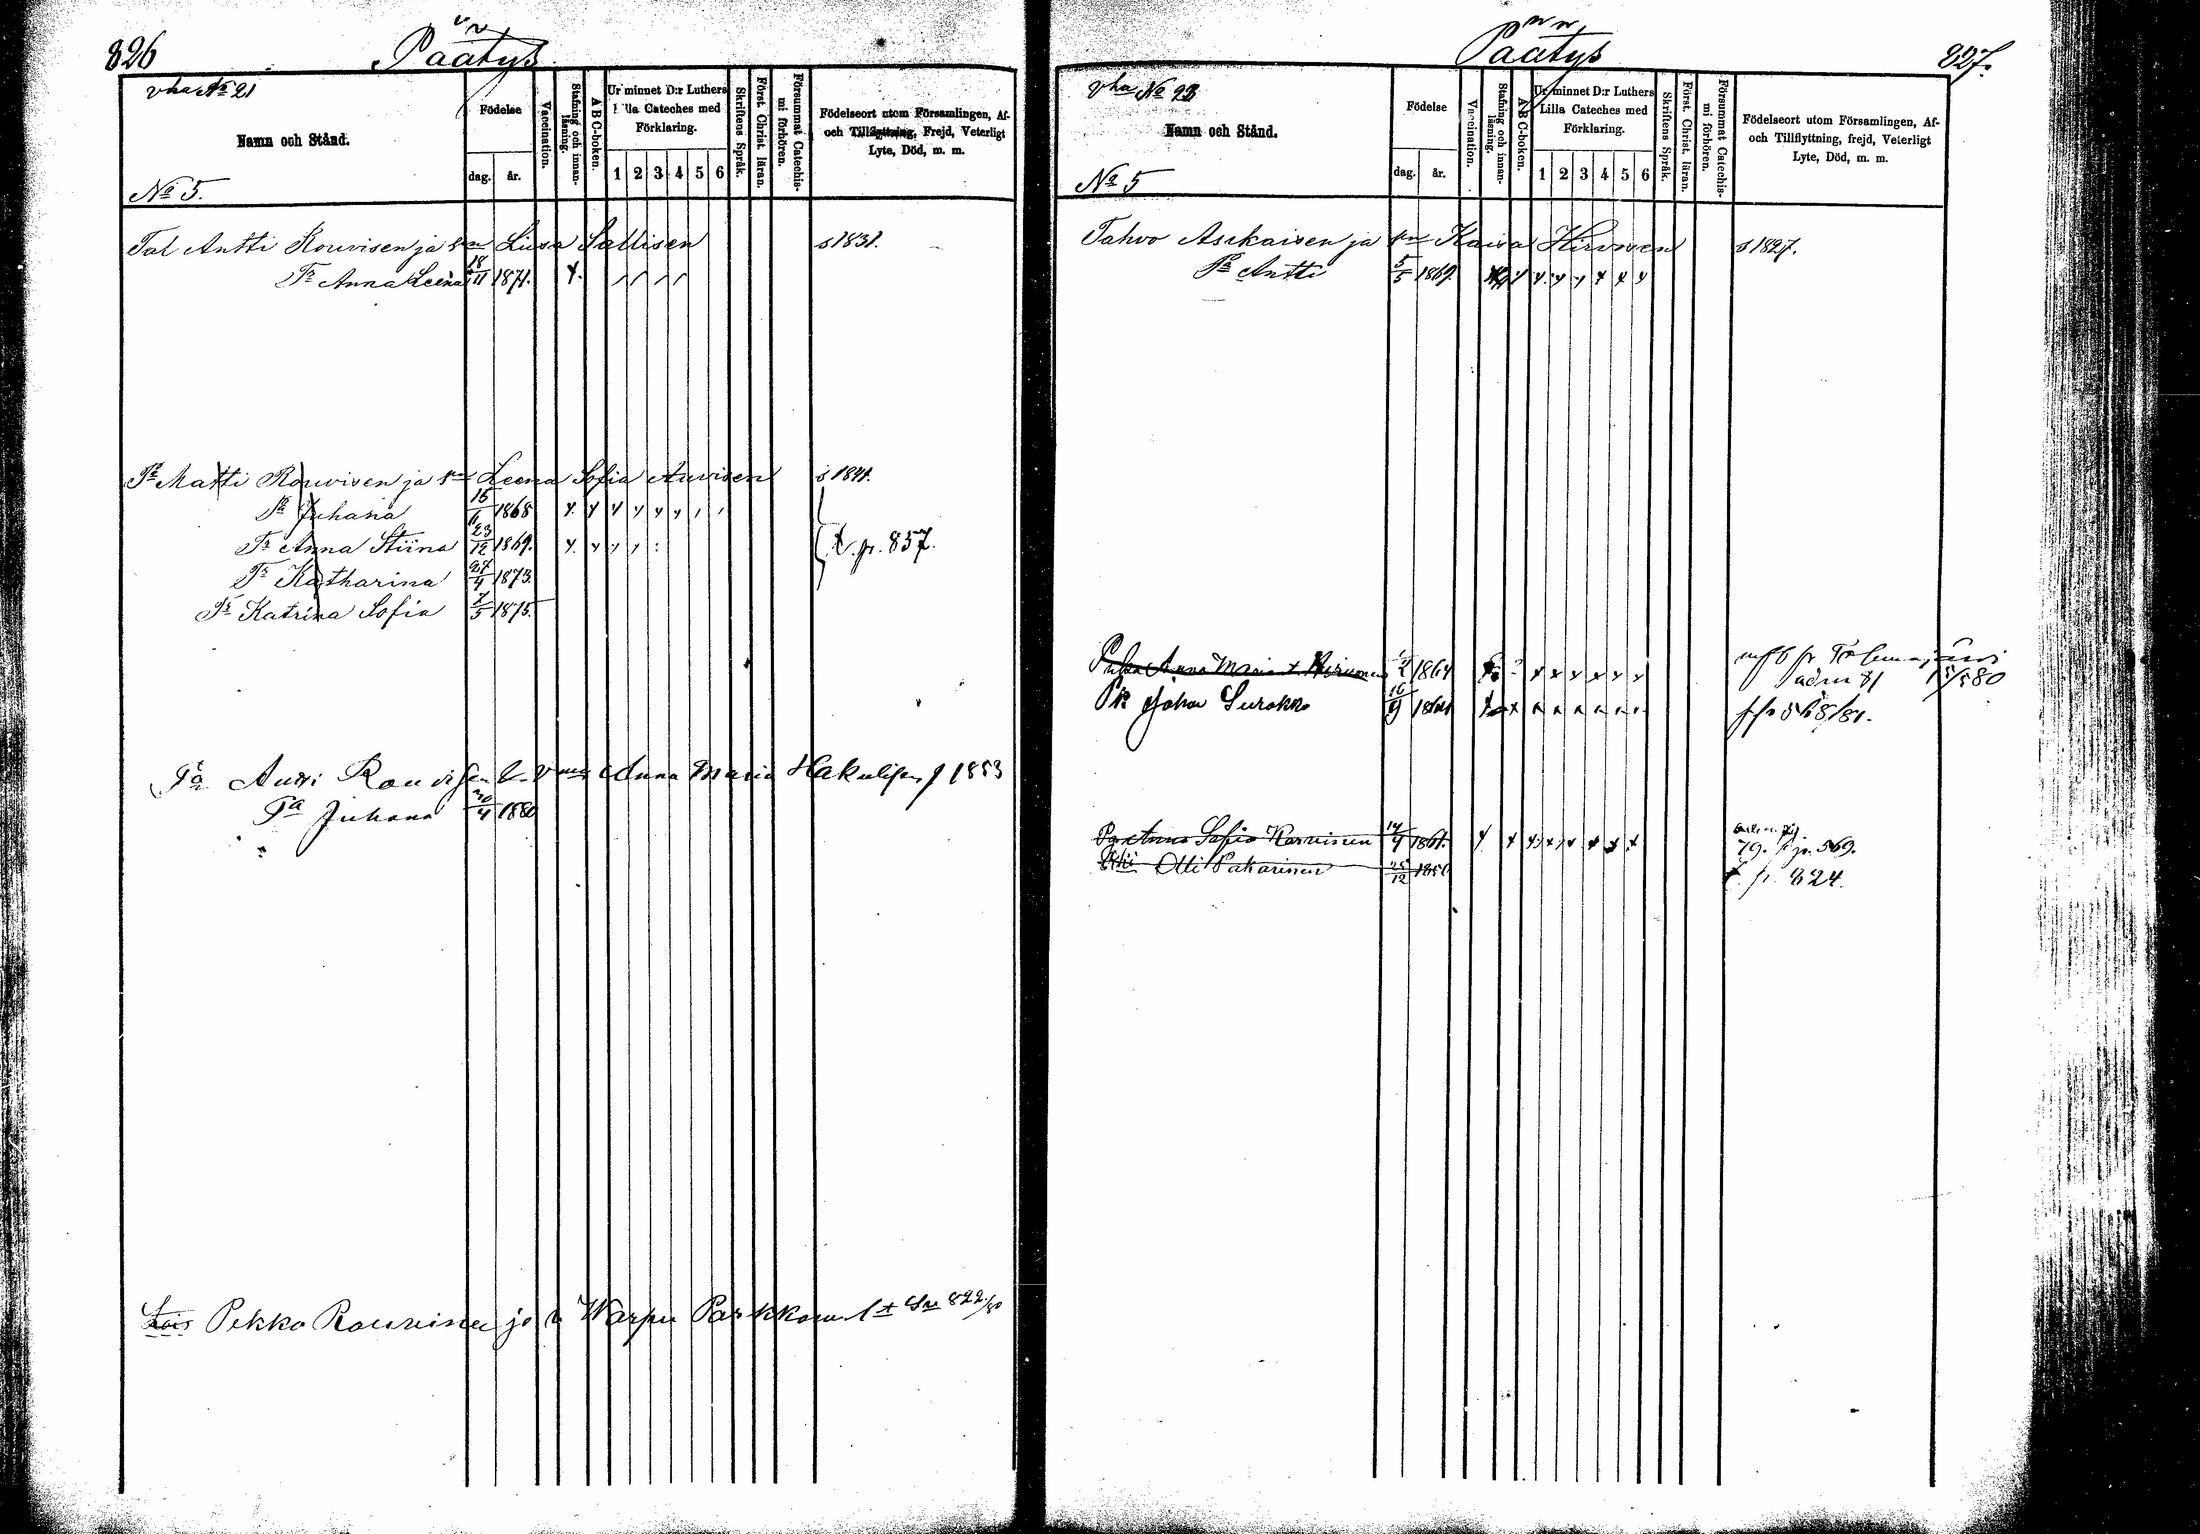 826
Päätys
vha No 21
Namn och Stånd.
No 5.
Födelse
dag.
år.
Vaccination.
Stafning och innan-läsning.
A B C-boken.
Ur minnet D:r Luthers
Lilla Cateches med
Förklaring.
1 2 3 4 5 6
Skriftens Språk.
Först. Christ. läran.
Försummat Catechis-
mi förhören.
Födelseort utom Församlingen, Af-
och Tillflyttning, Frejd, Veterligt
Lyte, Död, m. m.
Tal Antti Rouvisen ja vmn Liisa Sallisen s 1831.
Tr Anna Leena 18/11 1871.
Pa Matti Rouvisen ja vmn Leena Sofia Auvisen s 1841.
Pa Juhana 15/11 1868
Tr Anna Stiina 23/12 1869.
Tr Katharina 27/4 1873.
Tr Katrina Sofia 7/5 1875.
fr. p. 857.
Pa Anssi Rouvisen Anna Maria Hakulisen f 1853
Pa Juhana 30/4 1880
Lois Pekko Rouvinen ja v Warpu Parkkonen 822/80
827.
Päätys
vha No 23
Namn och Stånd.
No 5
Födelse
dag.
år.
Vaccination.
Stafning och innan-läsning.
A B C-boken.
Ur minnet D:r Luthers
Lilla Cateches med
Förklaring.
1 2 3 4 5 6
Skriftens Språk.
Först. Christ. läran.
Försummat Catechis-
mi förhören.
Födelseort utom Församlingen, Af-
och Tillflyttning, frejd, Veterligt
Lyte, Död, m. m.
Tahvo Asikaisen ja vmn Kaisa Hirvosen s 1827.
Pa Antti 5/5 1869.
Anna Maria Hirvonen 1864
Johan Surakka
Anna Sofia Karvinen 14/4 1861.
79. p. 569.
Olli Pakarinen 25/12 185
p. 824.